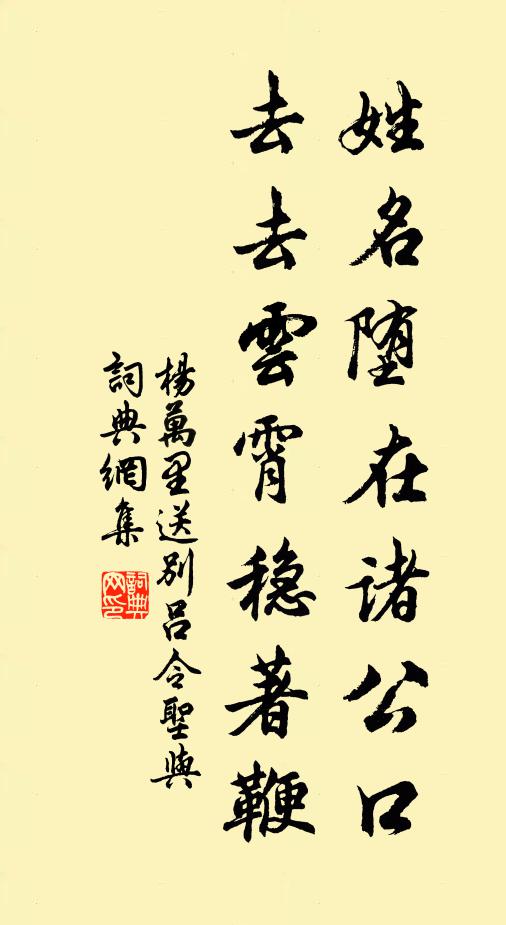 姓名堕在诸公口
去去雲霄穏著鞭
楊萬里送别吕令聖與
詞典網集
詞典网印